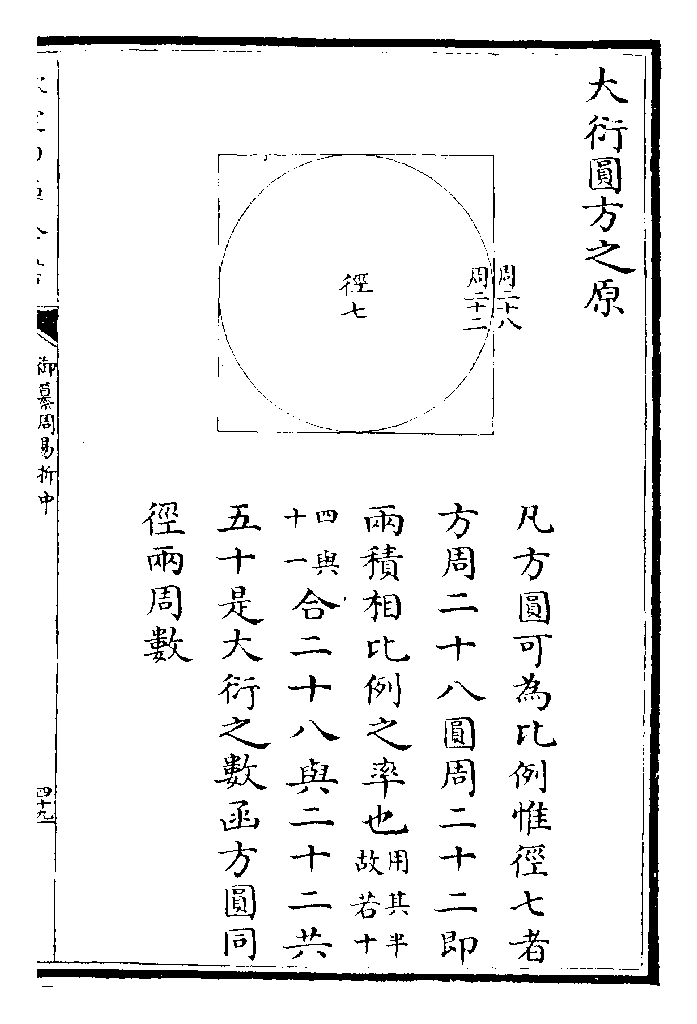 大衍圓方之原
周二十八
周二十二
徑七
凡方圓可為比例惟徑七者
方周二十八圓周二十二即
兩積相比例之率也用其半故若十
四與十一合二十八與二十二共
五十是大衍之數函方圓同
徑兩周數
御纂周易折中
四十九